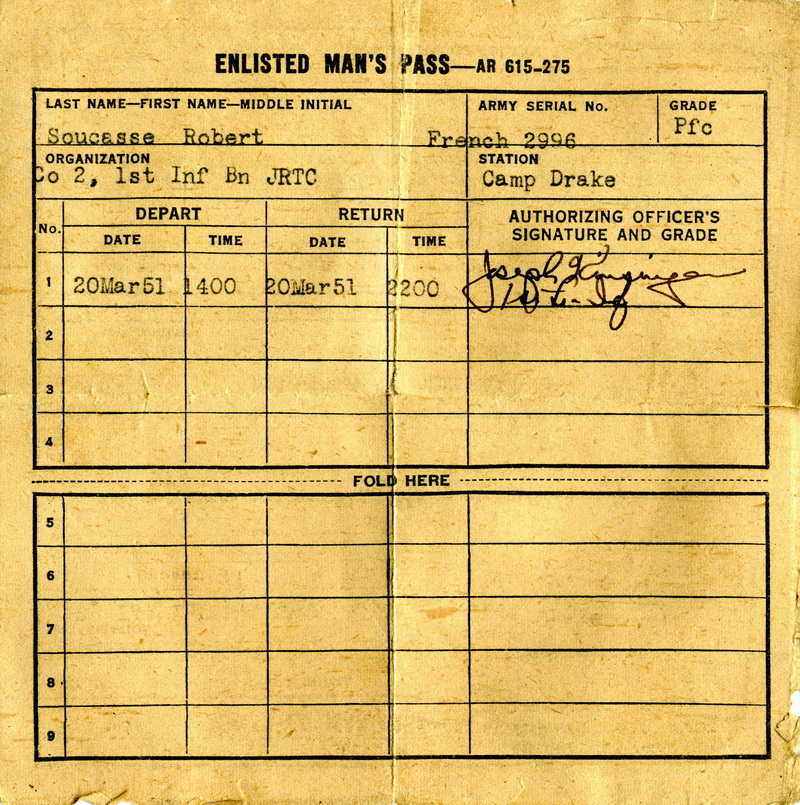 ENLISTED MAN'S PASS—AR 615-275
LAST NAME—FIRST NAME—MIDDLE INITIAL ARMY SERIAL No. GRADE
Soucasse Robert French 2996 Pfc
ORGANIZATION STATION
Co 2, 1st Inf Bn JRTC Camp Drake
No. DEPART RETURN AUTHORIZING OFFICER'S SIGNATURE AND GRADE
DATE TIME DATE TIME
1 20Mar51 1400 20Mar51 2200 Joseph
2
3
4
FOLD HERE
5
6
7
8
9